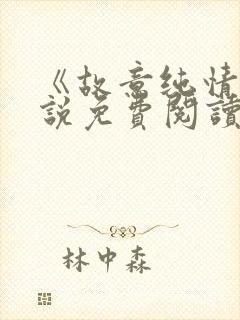 《故意纯情
説免費閱讀
林中森